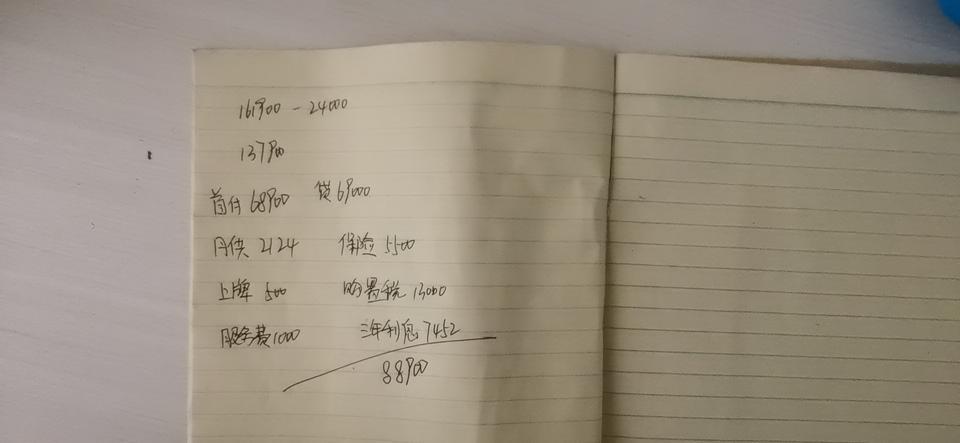 161900 - 24000
137900
首付 68900 贷 69000
月供 2124 保险 5500
上牌 500 购置税 13000
服务费 1000 三年利息 7452
88900